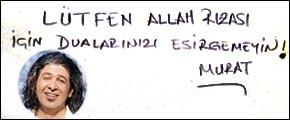 LÜTFEN ALLAH RIZASI
İÇİN DUALARINIZI ESİRGEMEYİN!
MURAT